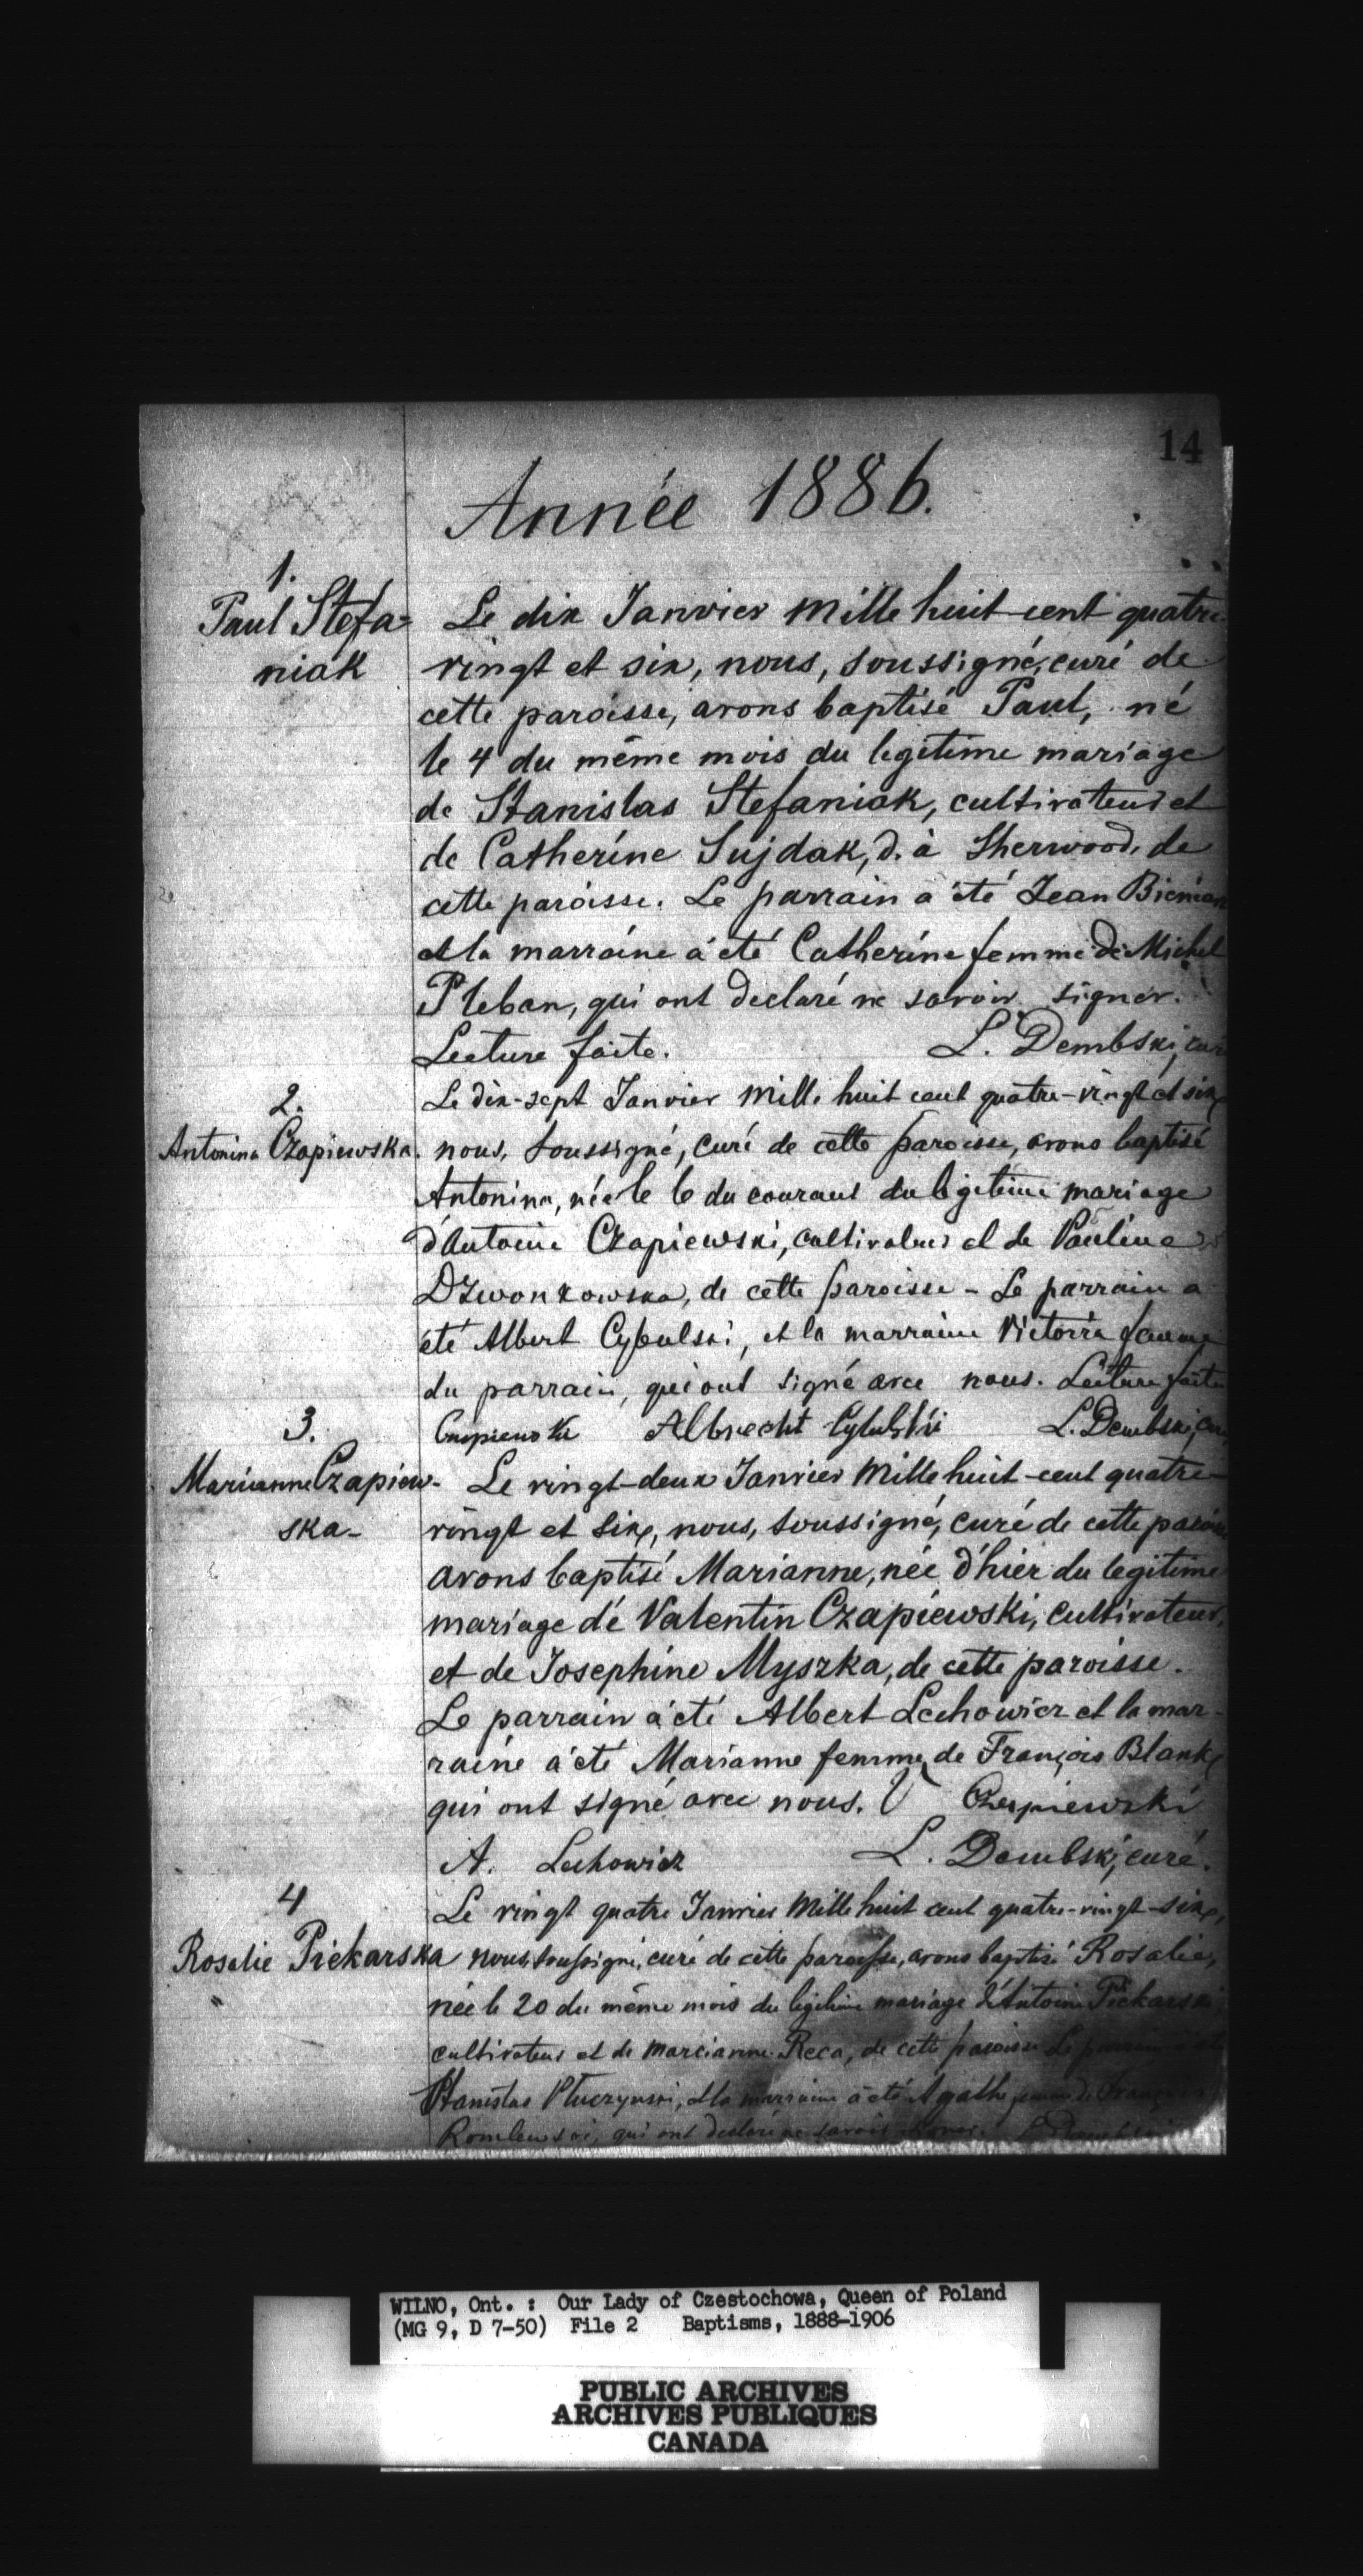 14
Année 1886.
1.
Paul Stefa-
niak
Le dix Janvier mille huit-cent quatre-
vingt et six, nous, soussigné, curé de
cette paroisse, avons baptisé Paul, né
le 4 du même mois du legitime mariage
de Stanislas Stefaniak, cultivateur et
de Catherine Sujdak, d. à Sherwood, de
cette paroisse. Le parrain a été Jean
et la marraine a été Catherine femme de Michel
Pleban, qui ont declaré ne savoir signer.
Lecture faite. L. Dembski, curé
2.
Antonina Czapiewska.
Le dix-sept Janvier mille huit cent quatre-vingt et six,
nous, soussigné, curé de cette paroisse, avons baptisé
Antonina, née le 6 du courant du legitime mariage
d'Antoine Czapiewski, cultivateur et de Pauline
Dzwonkowska, de cette paroisse - Le parrain a
été Albert Cybulski, et la marraine Victoria femme
du parrain, qui ont signé avec nous. Lecture faite
Albrecht Cybulski L. Dembski, curé
3.
Marianne Czapiew-
ska-
Le vingt-deux Janvier mille huit-cent quatre-
vingt et six, nous, soussigné, curé de cette paroisse
avons baptisé Marianne, née d'hier du legitime
mariage de Valentin Czapiewski, cultivateur,
et de Josephine Myszka, de cette paroisse.
Le parrain a été Albert Lechowicz et la mar-
raine a été Marianne femme de François Blank,
qui ont signé avec nous. V Czapiewski
A. Lechowicz L. Dembski, curé.
4
Rosalie Piekarska
Le vingt quatre Janvier mille huit cent quatre-vingt-six,
nous, soussigné, curé de cette paroisse, avons baptisé Rosalie,
née le 20 du même mois du legitime mariage d'Antoine Piekarski,
cultivateur et de Marcianne Reca, de cette paroisse Le parrain a été
Stanislas et la marraine a été Agathe femme de François
qui ont declaré ne savoir signer. L Dembski
WILNO, Ont. : Our Lady of Czestochowa, Queen of Poland
(MG 9, D 7-50) File 2 Baptisms, 1888-1906
PUBLIC ARCHIVES
ARCHIVES PUBLIQUES
CANADA